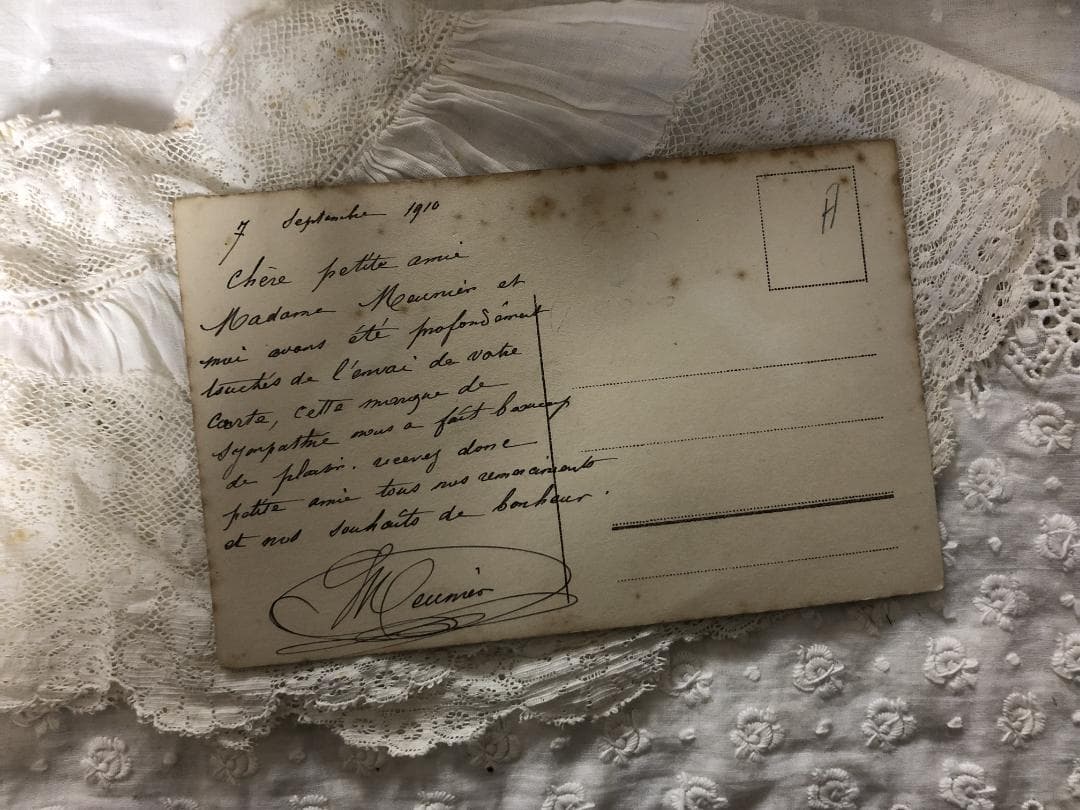 7 Septembre 1910
Chère petite amie
Madame Meunier et
moi avons été profondément
touchés de l'envoi de votre
carte, cette marque de
sympathie nous a fait beaucoup
de plaisir. recevez donc
petite amie tous nos remerciments
et nos souhaits de bonheur.
Meunier
H